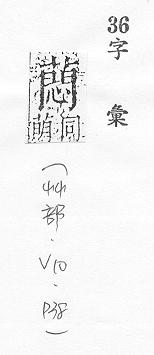 36
字彙
同萌
（艸部．V10．P38）